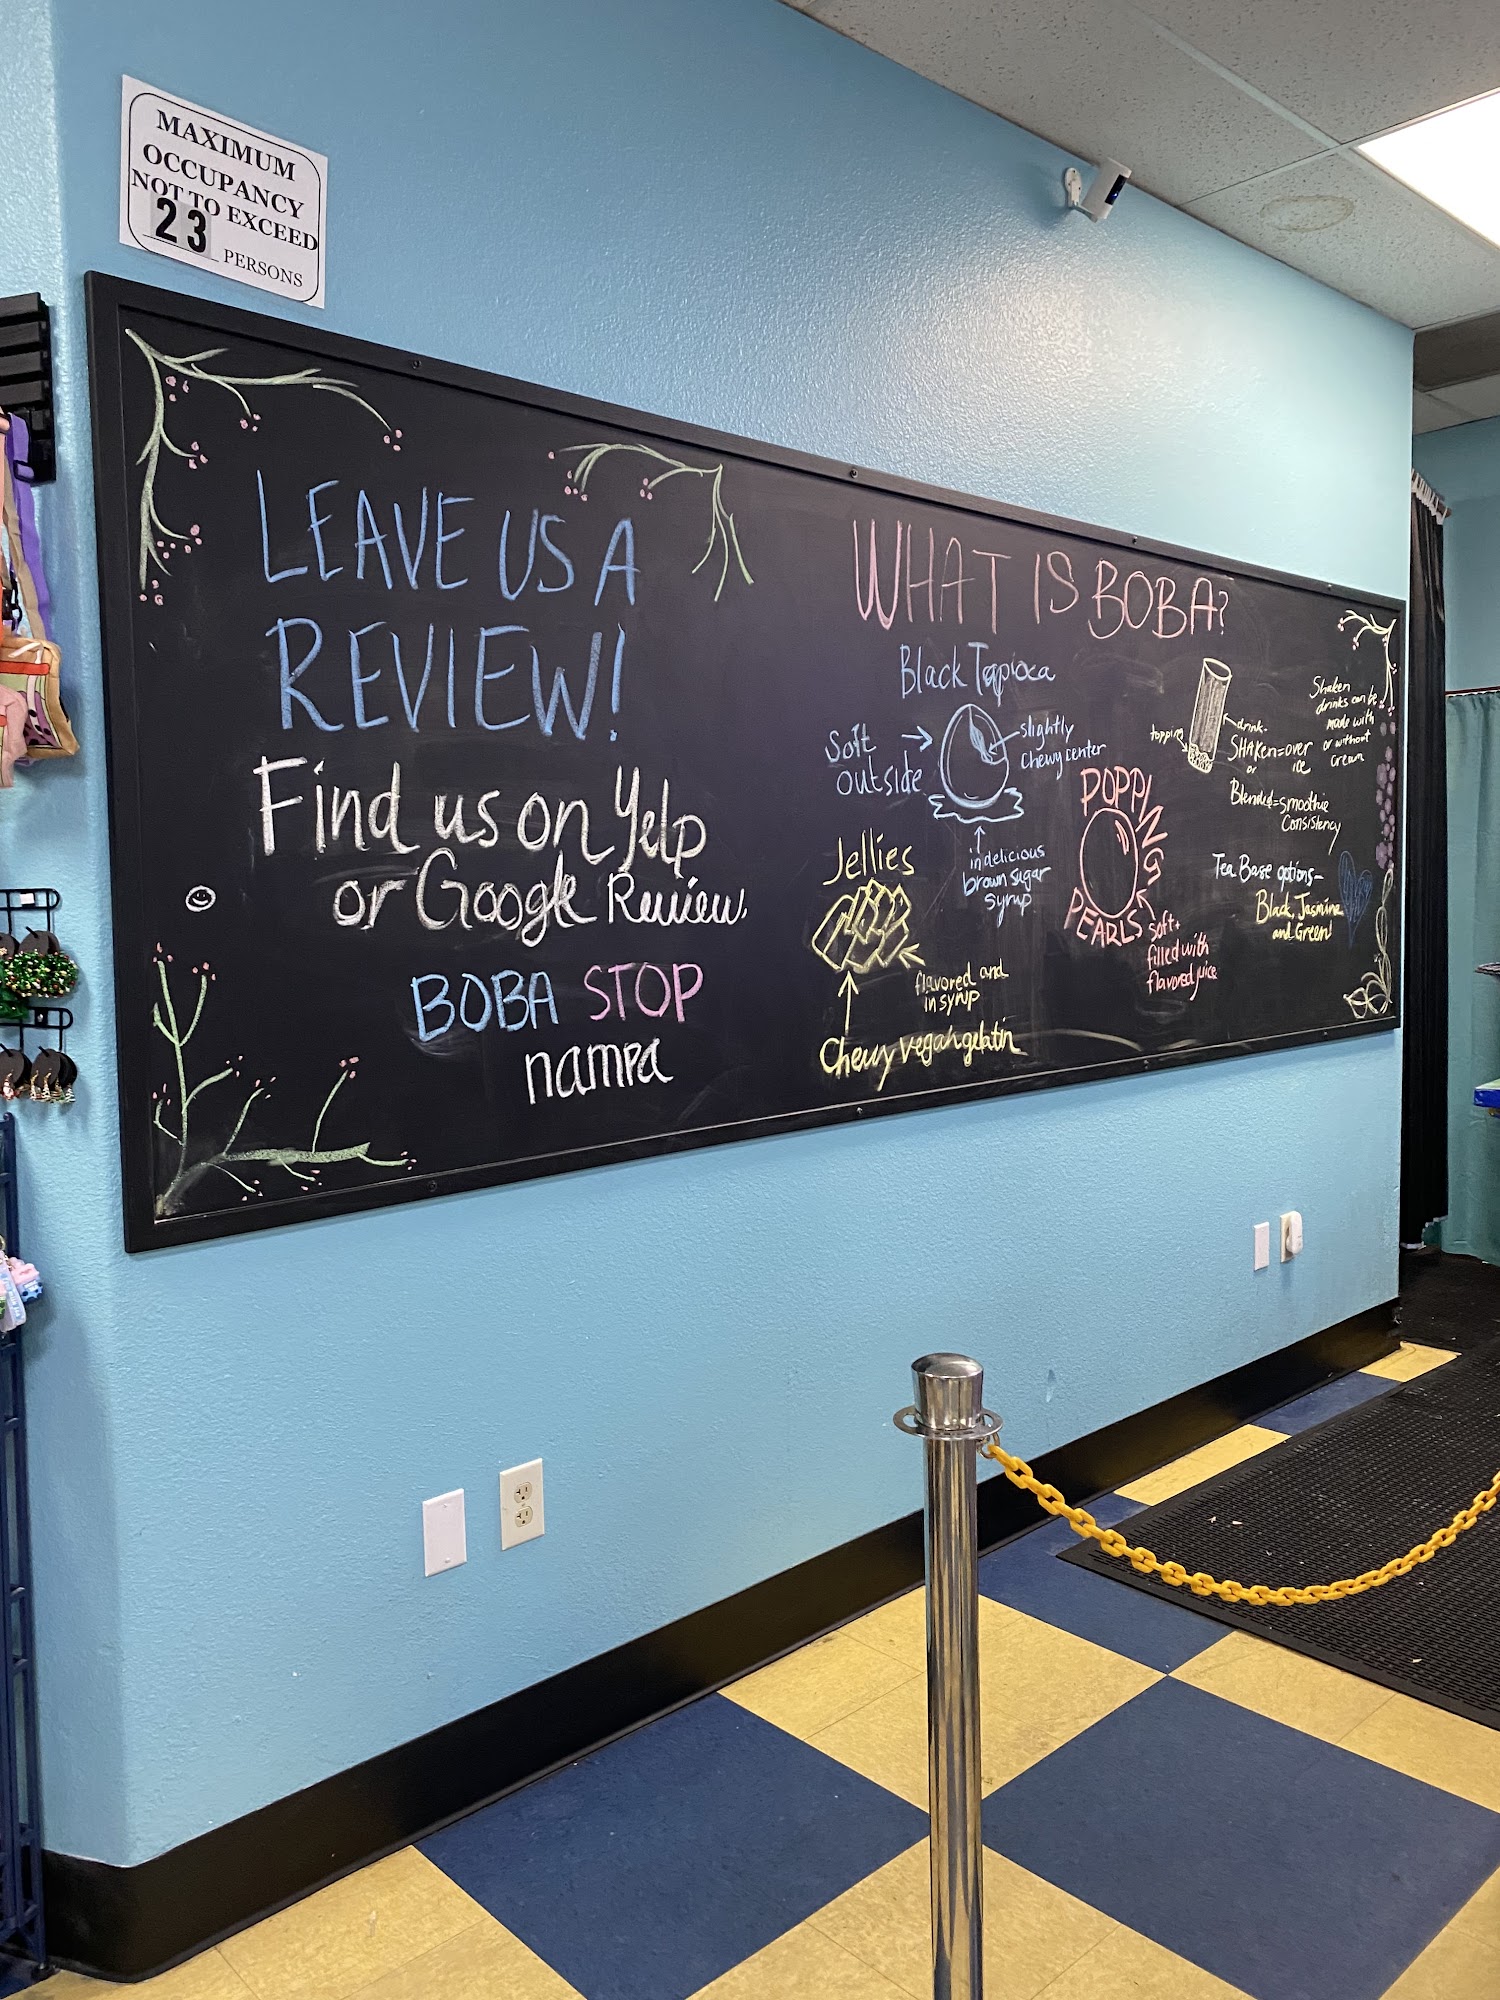 MAXIMUM
OCCUPANCY
NOT TO EXCEED
23 PERSONS
LEAVE US A
REVIEW!
Find us on Yelp
or Google Review.
BOBA STOP
nampa
WHAT IS BOBA?
Black Tapioca
Soft
outside
slightly
Chewy center
in delicious
brown sugar
syrup
Jellies
flavored and
in syrup
Chewy vegan gelatin
POPPING
PEARLS
soft +
filled with
flavored juice
topping
drink-
SHAKen = over
ice
or
Blended = smoothie
Consistency
Shaken
drinks can be
made with
or without
cream
Tea Base options-
Black, Jasmine
and Green!